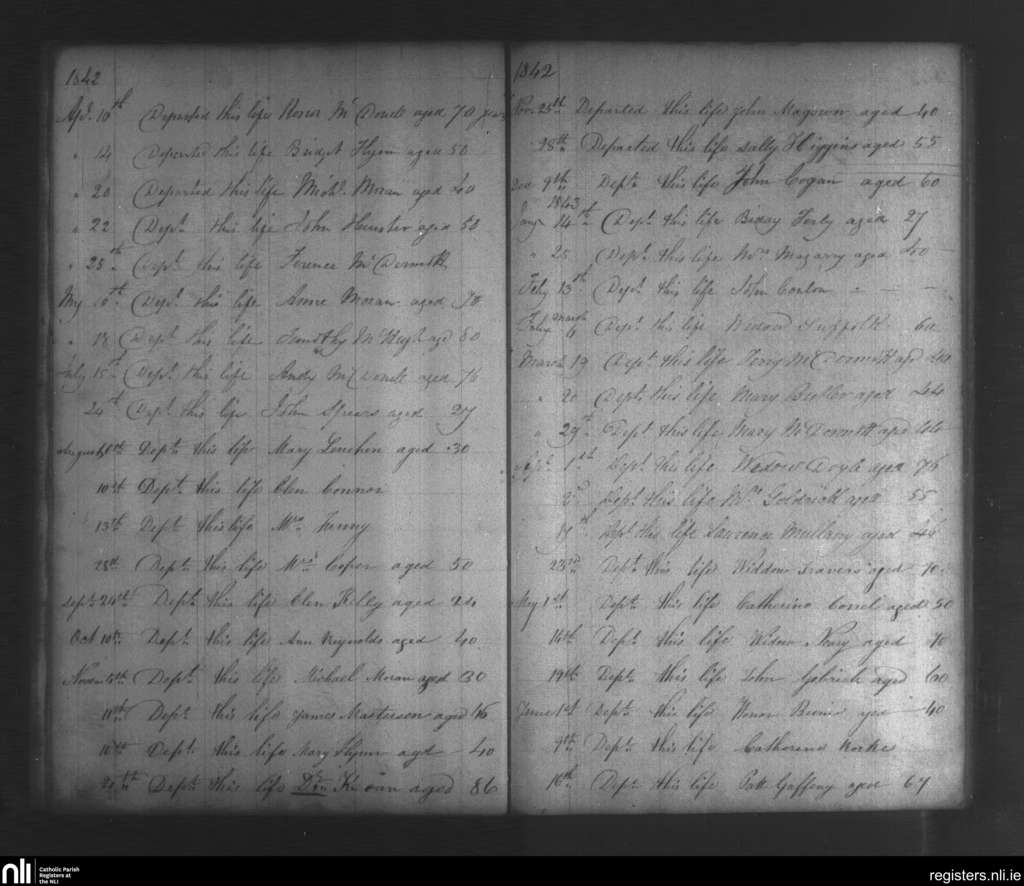 1842
Apl. 10th Departed this life Honor Mc Donell aged 70 years
" 14 Departed this life Bridget Flynn aged 50
" 20 Departed this life Michl. Moran aged 40
" 22 Dept. this life John aged 50
" 25th Dept. this life Terence McDermott
My 10th Dept. this life Anne Moran aged 78
" 17 Dept. this life Timothy McHugh agd 80
July 15th Dept. this life Andy McDonell aged 76
24th Dept. this life John Spears aged 27
August 8th Dept. this life Mary Lenehen aged 30
10th Dept. this life Elen Connor
13th Dept. this life Mrs. Finny
28th Dept. this life Mrs. aged 50
Sept. 24th Dept. this life Elen Kelly aged 24
Oct 10th Dept. this life Ann Reynolds aged 40
Novem 5th Dept. this life Michael Moran aged 30
11th Dept. this life James Masterson aged 76
16th Dept. this life Mary Flynn agd 40
Dept. this life Dr. aged 86
1842
Nov. 25th Departed this life John Magowan aged 40
28th Departed this life Sally Higgins aged 55
Dec 9th Dept. this life John Cogan aged 60
1843
Jany 14th Dept. this life Biddy aged 27
" 25 Dept. this life Mrs. Magarry aged 40
Feby 13th Dept. this life John Conlon
Feby March 4 Dept. this life Widow 60
March 19 Dept. this life Ferry McDermott agd
" 20 Dept. this life Mary Butler aged 44
" 29th Dept. this life Mary McDermott aged
1st Dept. this life Widow Doyle aged 76
Dept. this life Goldrick aged 55
Dept. this life Lawrence Mullroy aged
23rd Dept. this life Widdow Travers aged 70
May 1st Dept. this life Catherine aged 50
14th Dept. this life Widow Neary aged 70
19th Dept. this life John aged 60
June 1st Dept. this life Honor Beirne aged 40
9th Dept. this life Catherine Rorke
16th Dept. this life Patt Gaffeny aged 67
nli Catholic Parish
Registers at
the NLI
registers.nli.ie